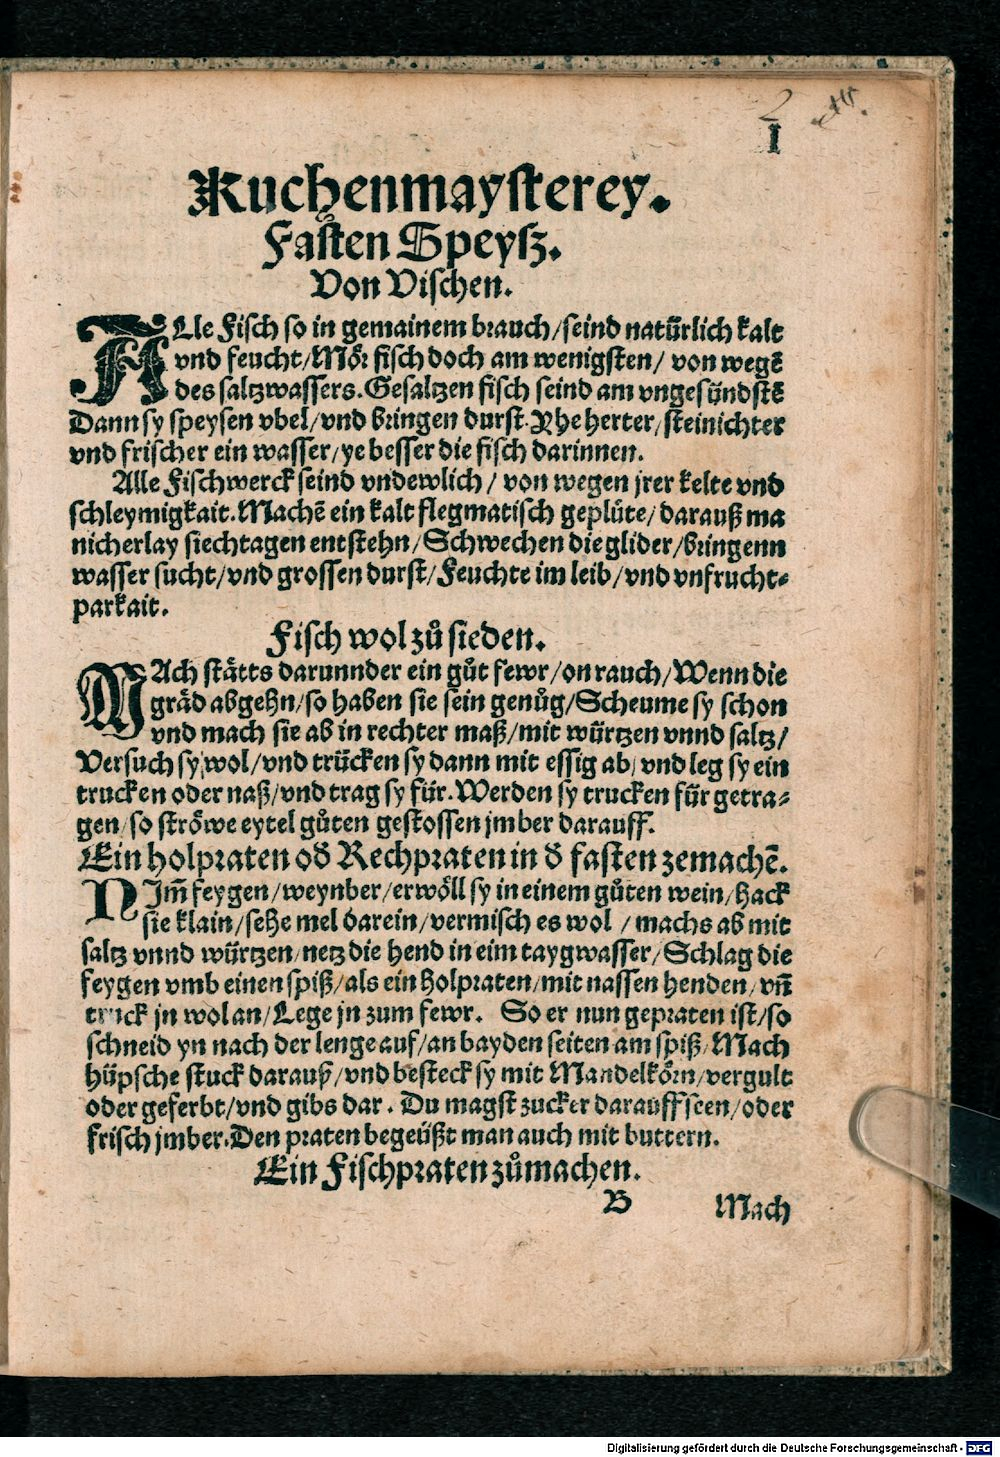 2
I
Kuchenmaysterey.
Fasten Speysz.
Von Vischen.
ALle Fisch so in gemainem brauch/seind natürlich kalt
vnd feucht/Mör fisch doch am wenigsten/ von wegē
des saltzwassers. Gesaltzen fisch seind am vngesündstē
Dann sy speysen vbel/vnd bringen durst. Yhe herter/steinichter
vnd frischer ein wasser/ye besser die fisch darinnen.
Alle Fischwerck seind vndewlich/ von wegen jrer kelte vnd
schleymigkait. Machē ein kalt flegmatisch geplüte/darauß ma
nicherlay siechtagen entstehn/Schwechen die glider/bringenn
wasser sucht/vnd grossen durst/Feuchte im leib/vnd vnfrucht-
parkait.
Fisch wol zů sieden.
MAch stätts darunnder ein gůt fewr/on rauch/Wenn die
gräd abgehn/so haben sie sein genůg/Scheume sy schon
vnd mach sie ab in rechter maß/mit würtzen vnnd saltz/
Versuch sy wol/vnd trücken sy dann mit essig ab/vnd leg sy ein
trucken oder naß/vnd trag sy für. Werden sy trucken für getra-
gen/so ströwe eytel gůten gestossen jmber darauff.
Ein holpraten od̄ Rechpraten in d̄ fasten zemachē.
NJm̄ feygen/weynber/erwöll sy in einem gůten wein/hack
sie klain/sehe mel darein/vermisch es wol /machs ab mit
saltz vnnd würtzen/netz die hend in eim taygwasser/Schlag die
feygen vmb einen spiß/als ein holpraten/mit nassen henden/vn̄
truck jn wol an/Lege jn zum fewr. So er nun gepraten ist/so
schneid yn nach der lenge auf/an bayden seiten am spiß/Mach
hüpsche stuck darauß/vnd besteck sy mit Mandelkörn/vergult
oder geferbt/vnd gibs dar. Du magst zucker darauff seen/oder
frisch jmber. Den praten begeüßt man auch mit buttern.
Ein Fischpraten zůmachen.
B Mach
Digitalisierung gefördert durch die Deutsche Forschungsgemeinschaft - DFG